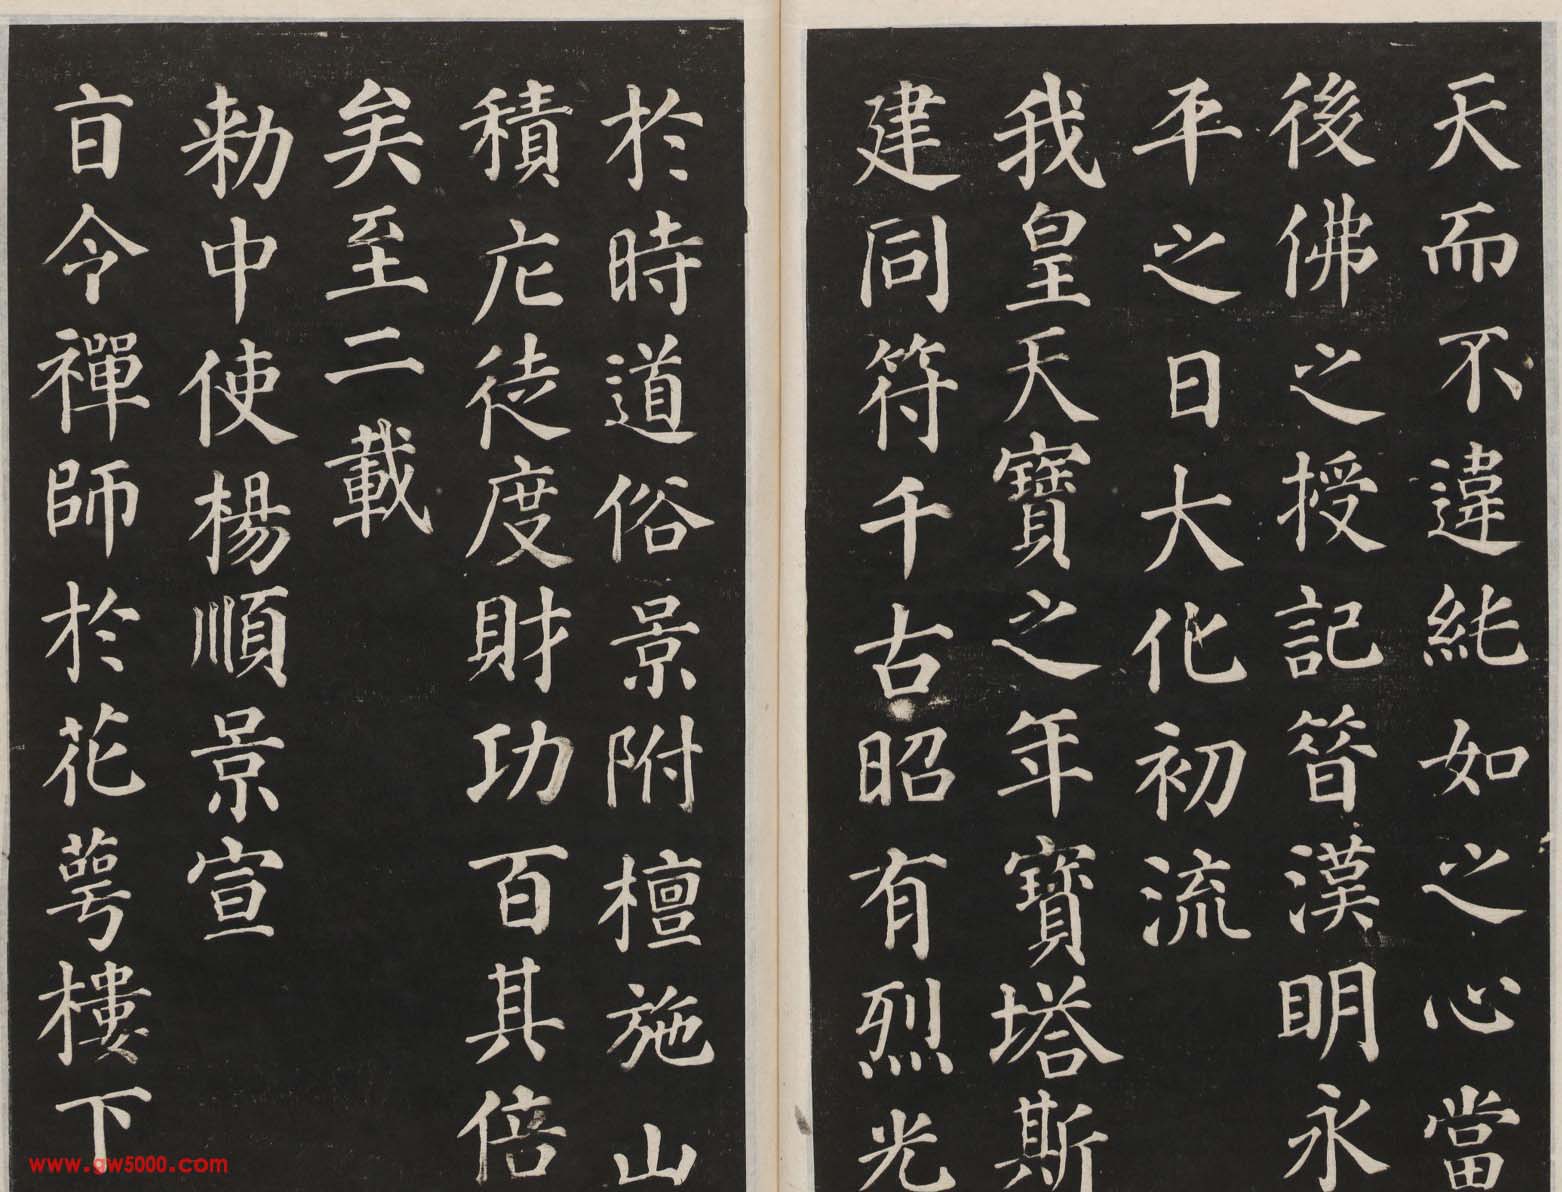 天而不違純如之心當
後佛之授記昔漢明永
平之日大化初流
我皇天寶之年寶塔斯
建同符千古昭有烈光
於時道俗景附檀施山
積庀徒度財功百其倍
矣至二載
勑中使楊順景宣
㫖令禪師於花萼樓下
www.gw5000.com